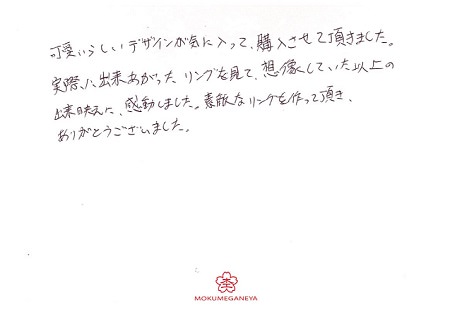 可愛いらしいデザインが気に入って、購入させて頂きました。
実際に出来あがったリングを見て、想像していた以上の
出来映えに、感動しました。素敵なリングを作って頂き、
ありがとうございました。
MOKUMEGANEYA